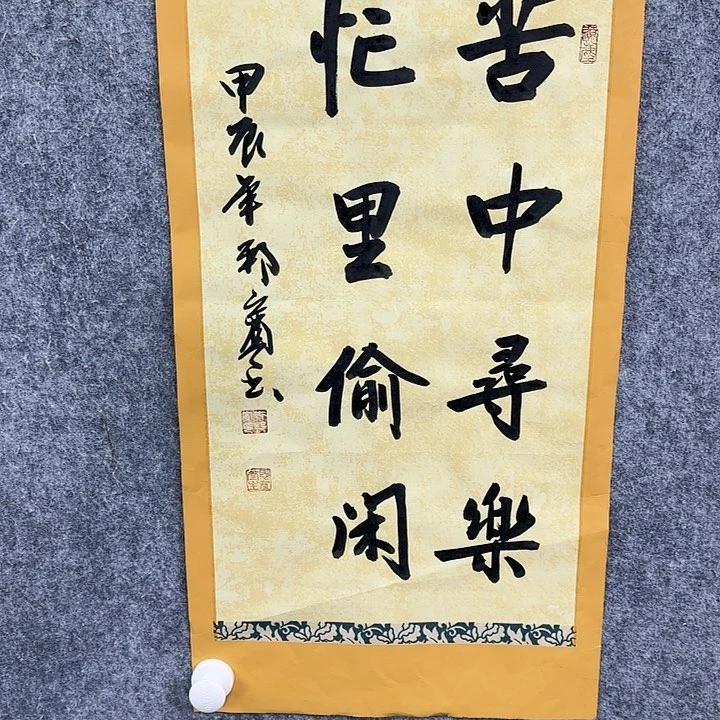 苦中尋樂
忙里偷闲
甲辰年